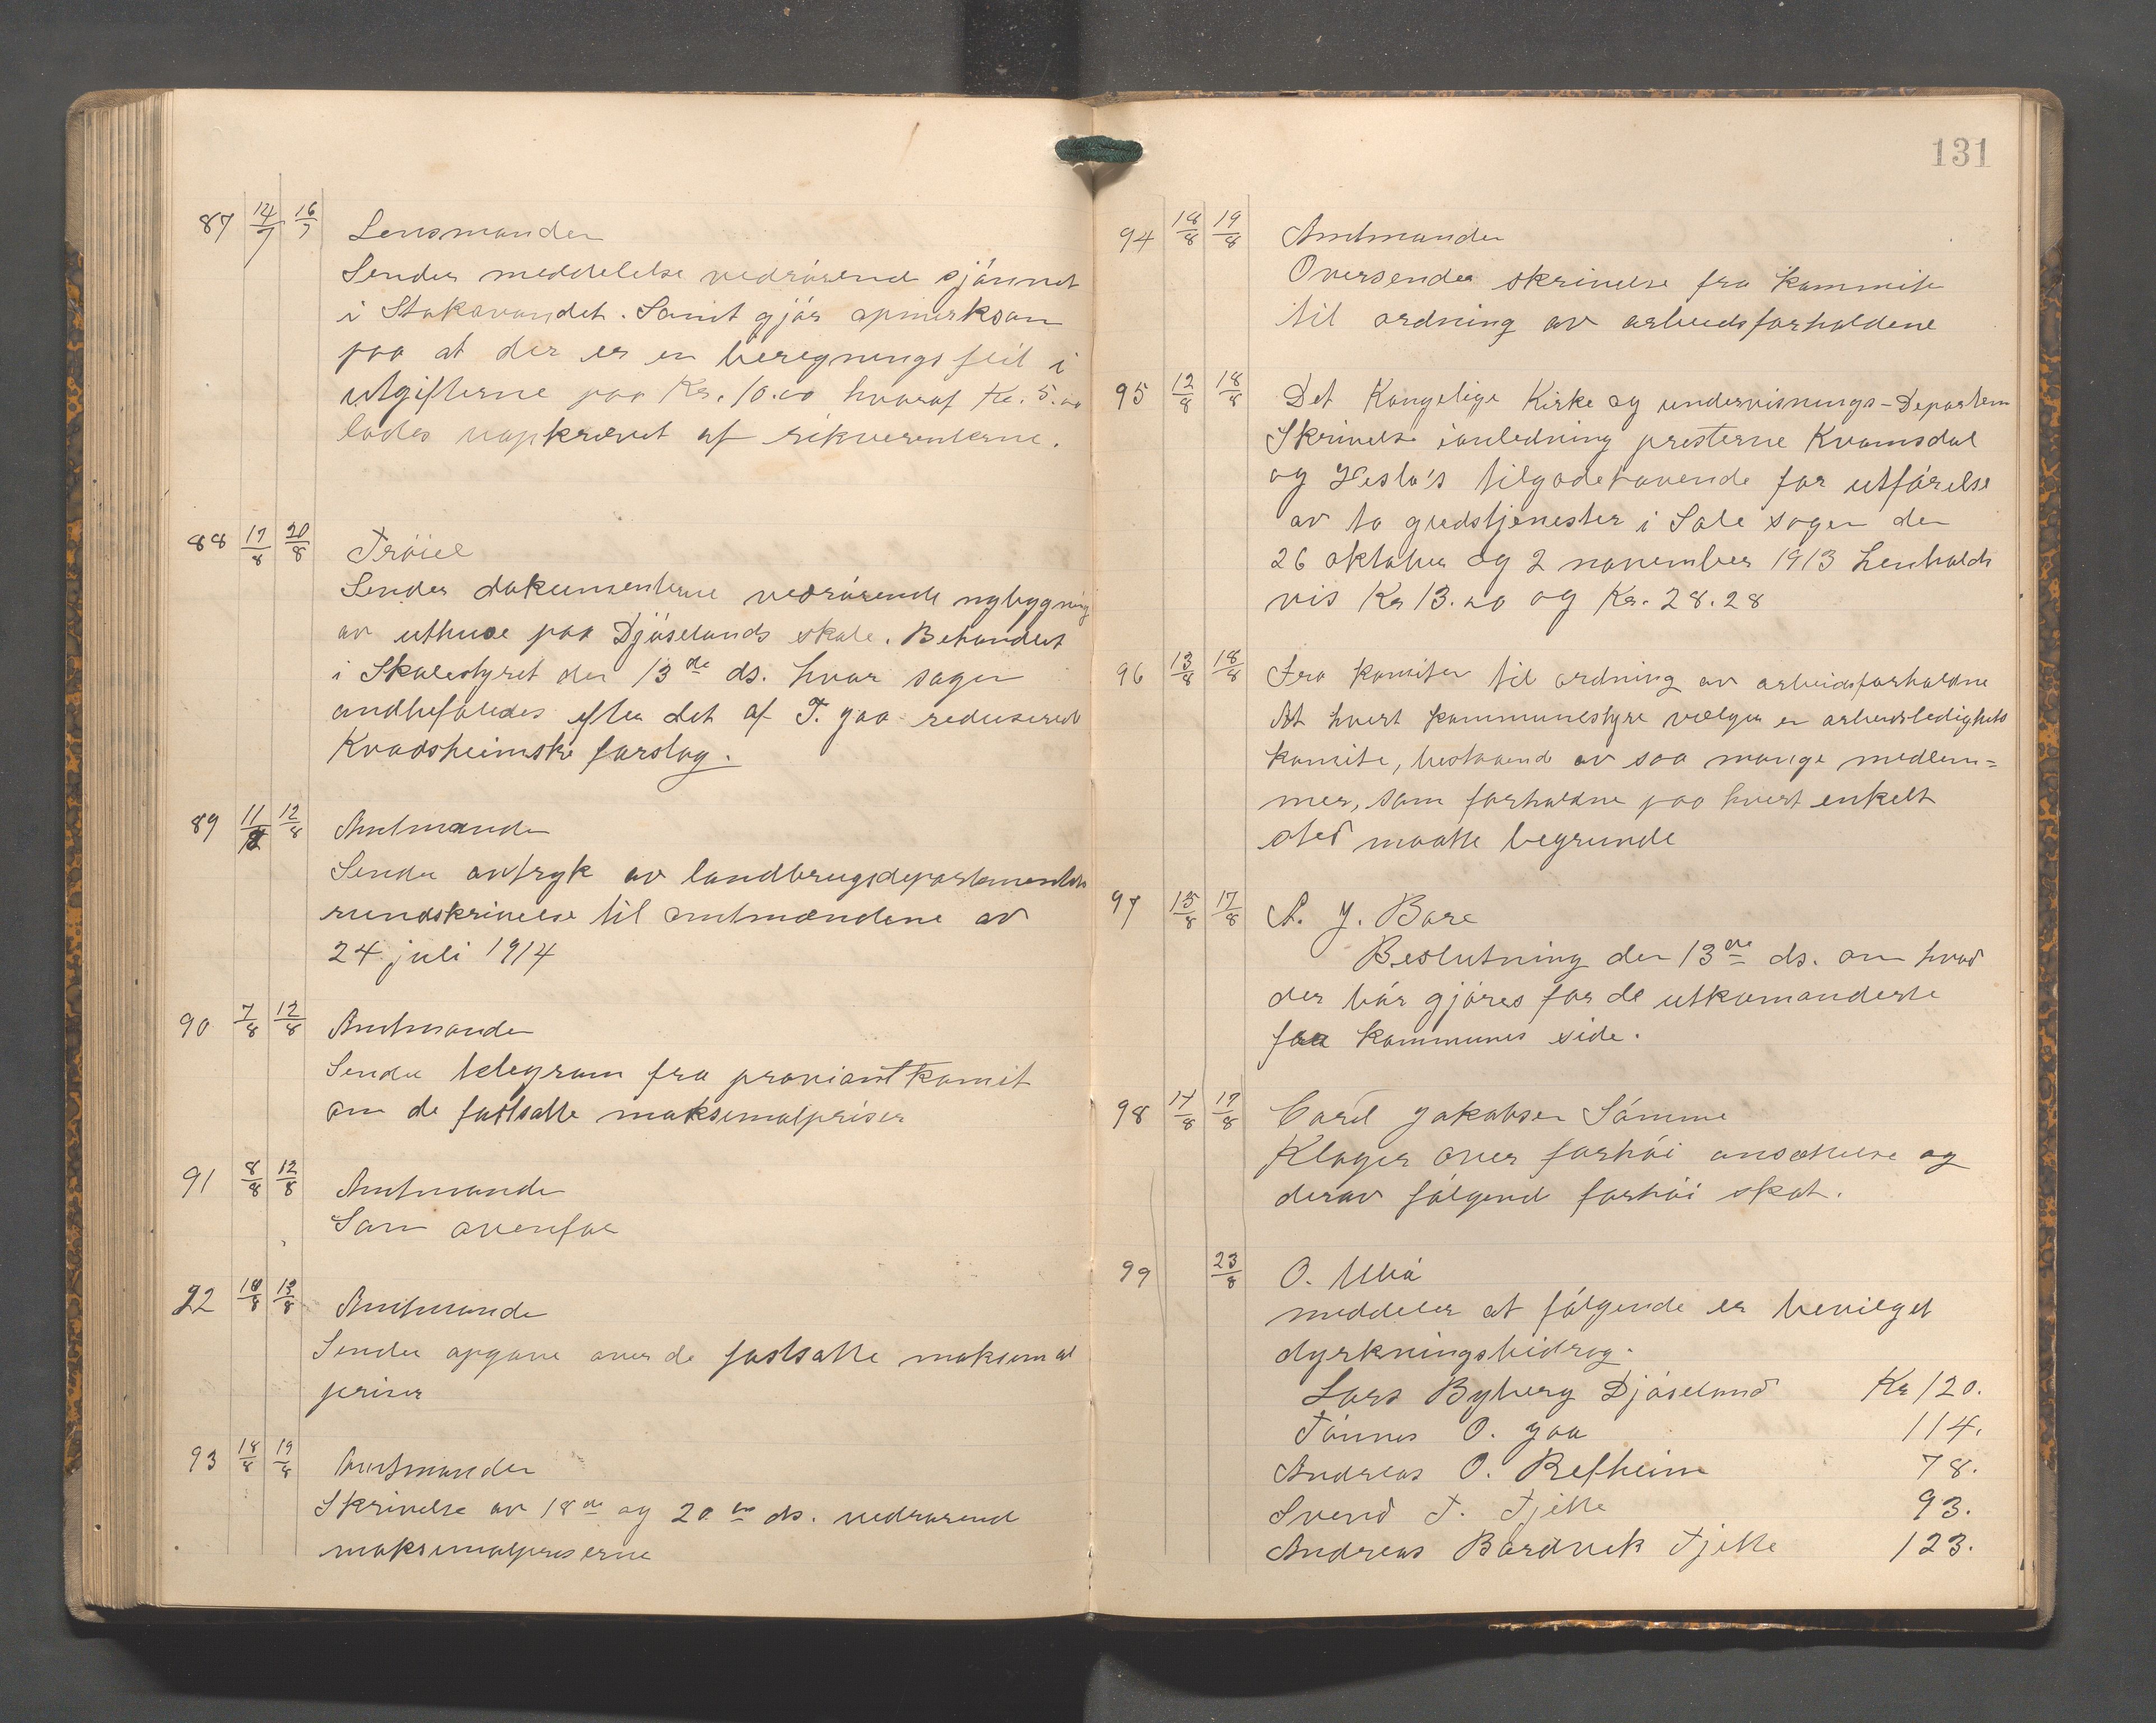 87 14/7 16/7 Lensmanden
Sender meddelelse vedrørend sjønnet
i Stokavandet. Samt gjør opmerksom
paa at der er en beregnings feil i
utgifterne paa Kr. 10.00 hvoraf Kr. 5.00
lodes uopkrævet af rekvirenterne.
88 17/8 20/8 Trøiel
Sender dokumenterne vedrørende nybygning
av uthuse paa Djøselands skole. Behandlet
i Skolestyret den 13de ds. hvor sagen
andbefaledes efter det af T. Joa reduserede
Kvadsheimske forslag.
89 11/8 12/8 Amtmanden
Sender avtryk av landbrugsdepartementets
rundskrivelse til amtmændene av
24. juli 1914
90 7/8 12/8 Amtmanden
Sender telegram fra proviantkomit
om de fastsatte maksimalpriser
91 8/8 12/8 Amtmande
Som ovenfor
92 10/8 13/8 Amtmande
Sender opgave over de fastsatte maksimal
priser
93 18/8 19/8 Amtmanden
Skrivelse av 18de og 20de ds. vedrørend
maksimalpriserne
131
94 18/8 19/8 Amtmanden
Oversender skrivelse fra kommite
til ordning av arbeidsforholdene
95 12/8 18/8 Det Kongelige Kirke og undervisnings-Departem
Skrivelse ianledning presterne Kvamsdal
og Hesla's tilgodehavende for utførelse
av to gudstjenester i Sole sogn den
26 oktober og 2 november 1913 henholds
vis Kr 13.20 og Kr. 28.28
96 13/8 18/8 Fra komiteen til ordning av arbeidsforholdne
At hvert kommunestyre vælger en arbeidsledigheds
komite, bestaaend av saa mange medlem=
mer, som forholdne paa hvert enkelt
sted maatte begrunde
97 15/8 17/8 A. J. Bore
Beslutning den 13de ds. om hvad
der bør gjøres for de utkomanderte
fra kommunes side.
98 14/8 17/8 Carel Jakobsen Sømme
Klager over forhøi ansættelse og
derav følgend forhøi skat.
99 23/8 O. Ubø
meddeler at følgende er bevilget
dyrkningsbidrag.
Lars Byberg Djøseland Kr 120.
Tønnes O. Joa 114.
Andreas O. Refheim 78.
Svend T. Tjelte 93.
Andreas Bordvik Tjelte 123.